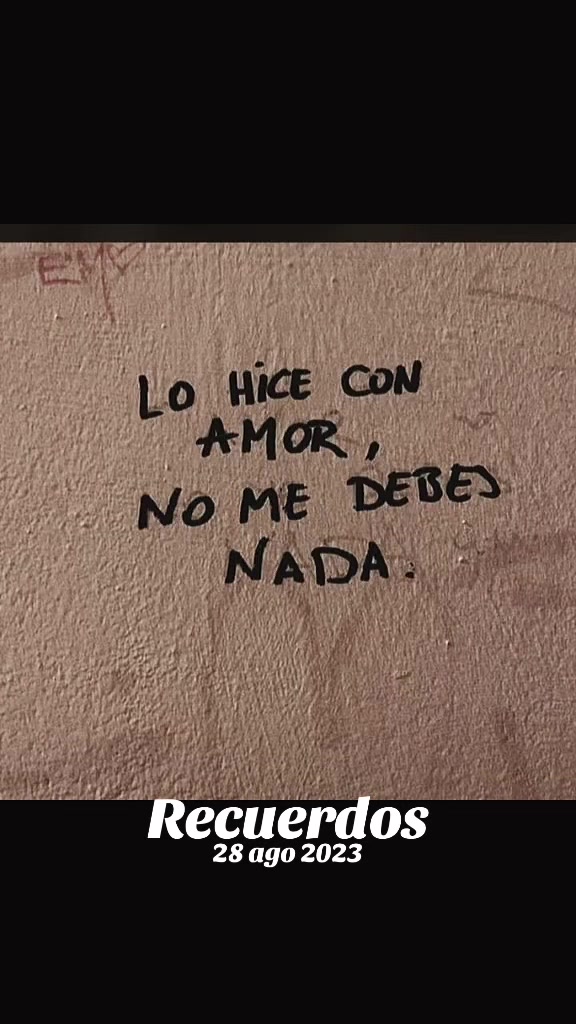 EM♡
LO HiCE CON
AMOR,
NO ME DEBES
NADA.
Recuerdos
28 ago 2023